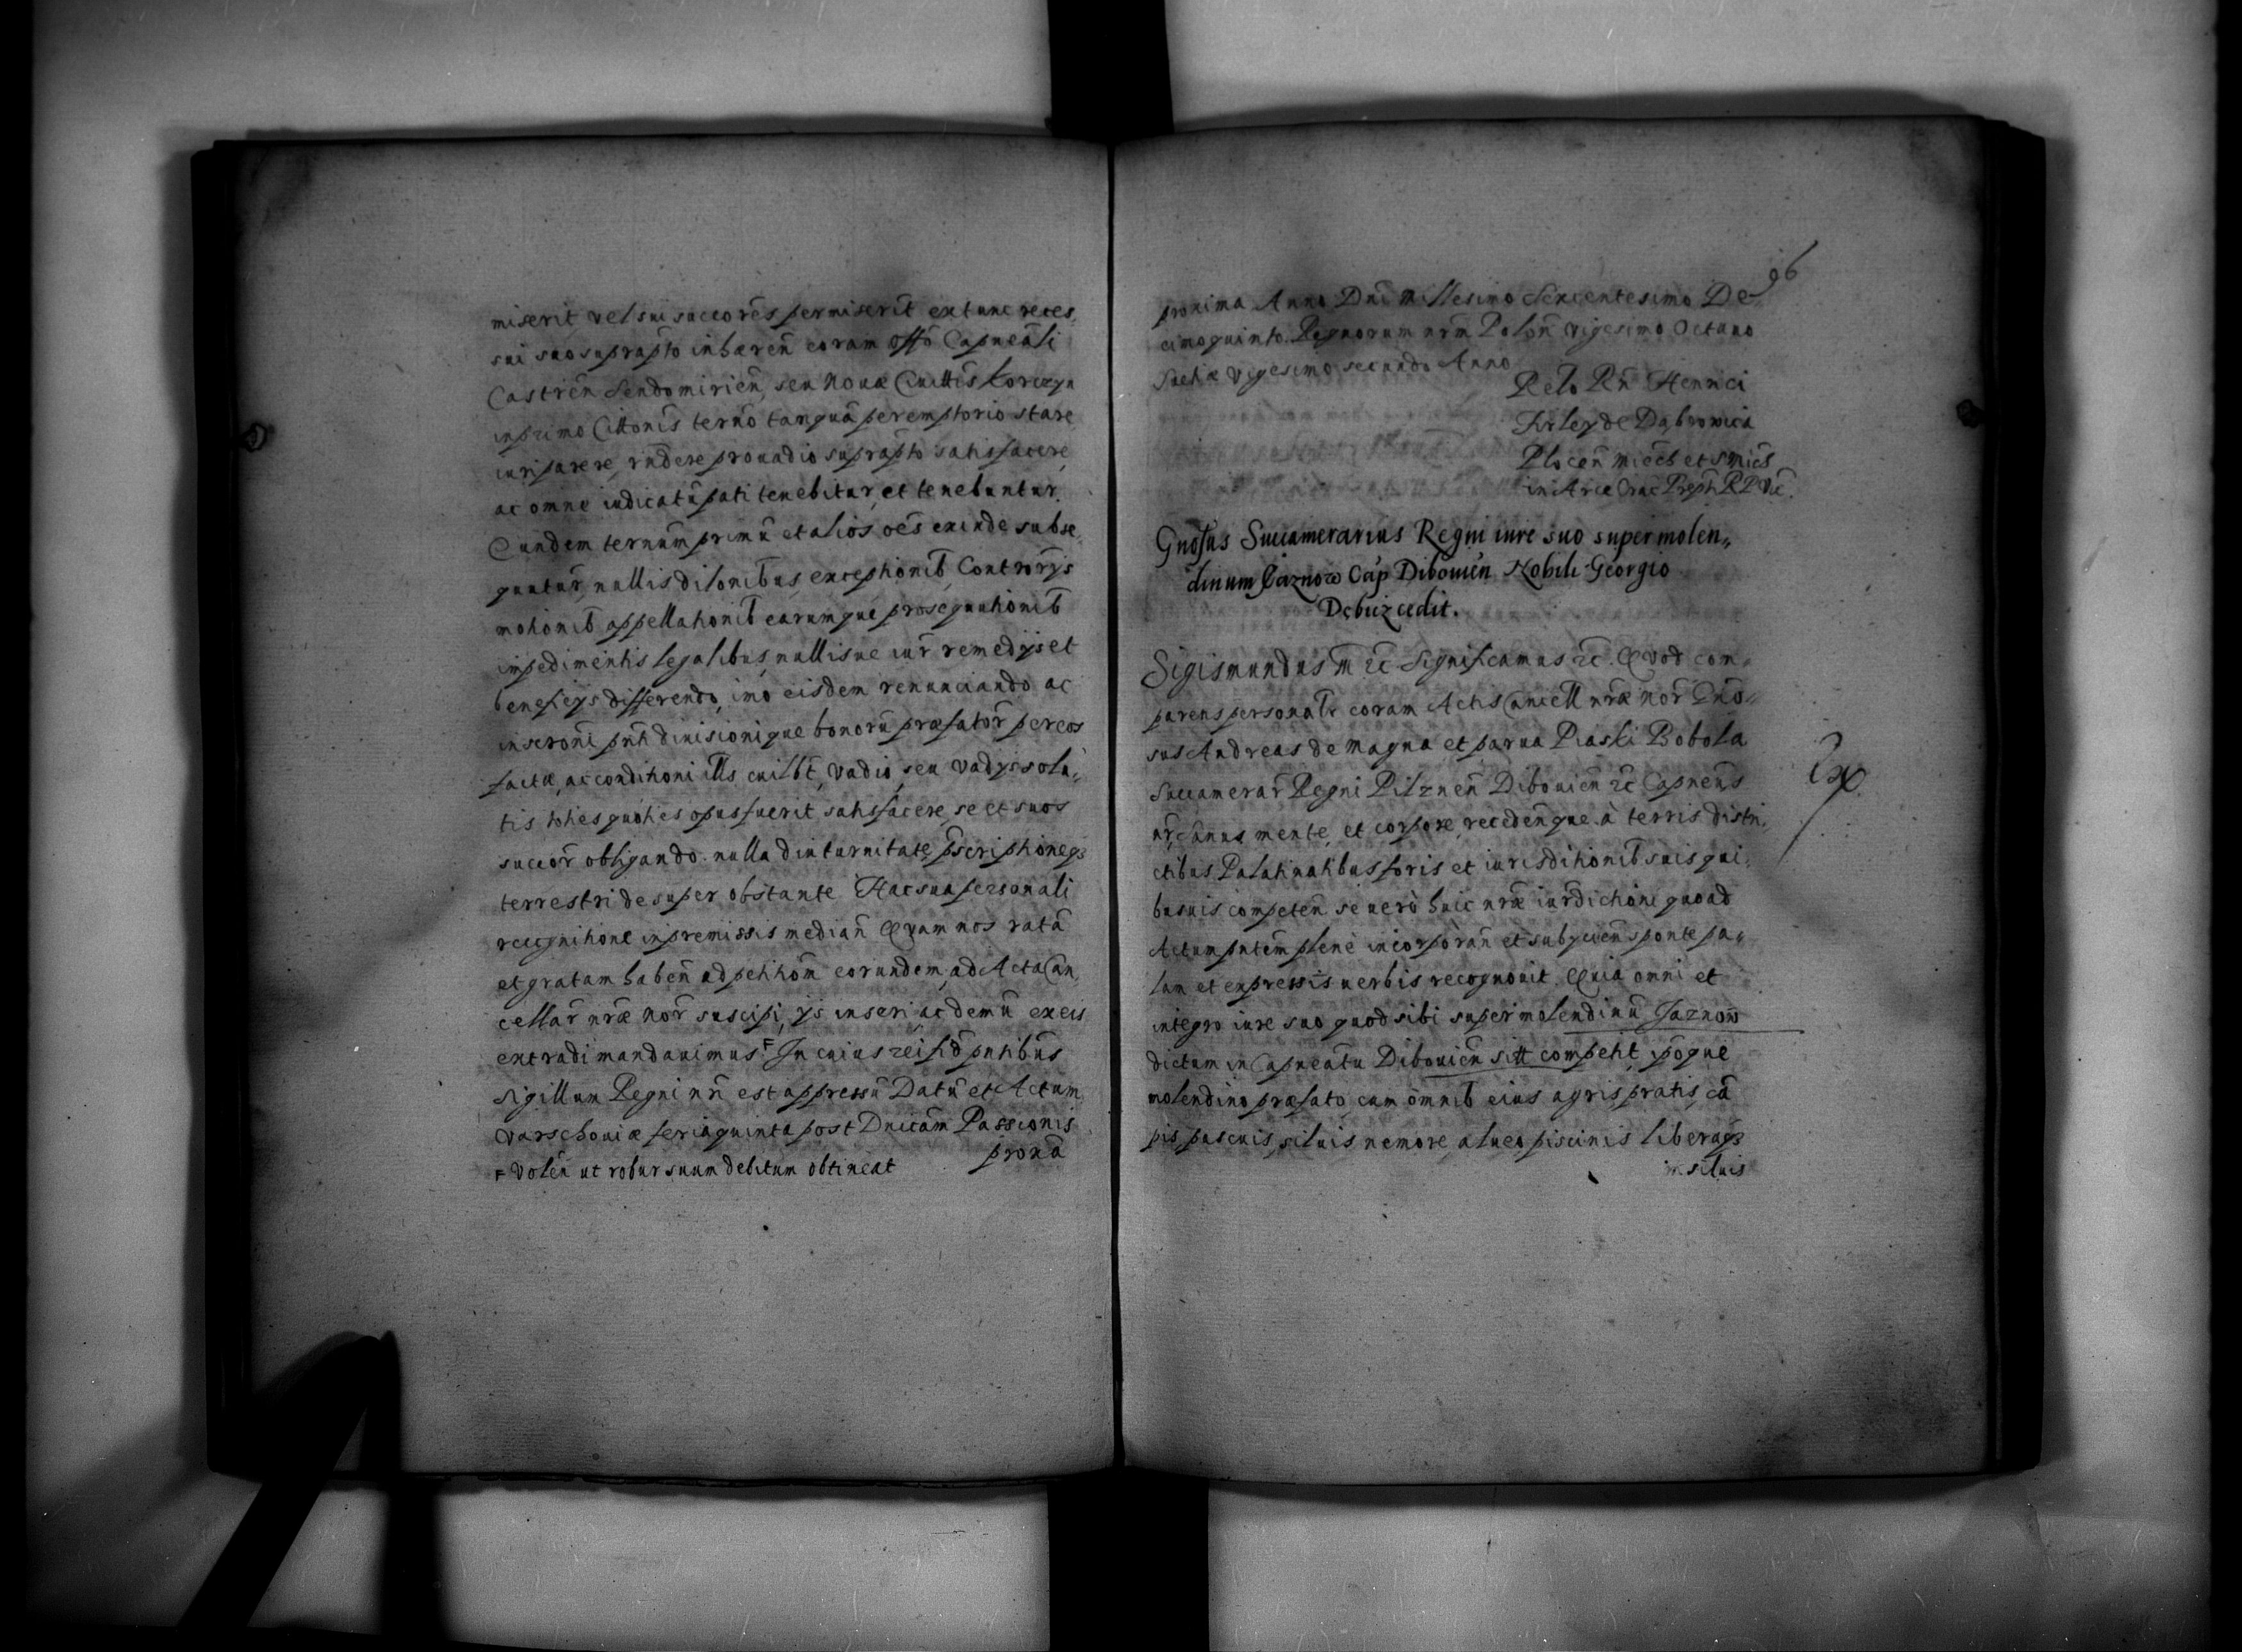 miserit vel sui succores permiserit extunc reces„
sui suo suprapto inhæren coram Offo Capneali
Castren Sendomirien, seu Novæ Ciuittis Korczyn
in primo Cittonis terno tanquã peremptorio stare
iuri parere, rndere pro vadio suprapto satisfacere
ac omne iudicatũ pati tenebitur, et tenebuntur.
Eundem ternum primũ et alios oẽs exinde subse„
quntur, nullis dilonibus, exceptionib, Controrijs
motionib appellationib earumque prosequutionib
impedimentis legalibus, nullisue iur remedijs et
beneficijs differendo, imo eisdem renunciando ac
inscroni pnti diuisionique bonorũ præfator per eos
factæ, ac condihoni ills cuilbt, vadio, seu vadijs solu„
tis toties quoties opus fuerit, satisfacere, se et suos
succor obligando. nulla diuturnitate, pscriptioneq3
terrestri desuper obstante Hac sua personali
recognitione in premissis median Quam nos ratã
et gratam haben ad petitiom eorundem, ad Acta Can„
cellar nræ Mor suscipi, ijs inseri, ac demũ ex eis
extradi mandauimus. F In cuius rei fid pntibus
sigillum Regni nri est appressũ Datũ et Actum
Varschouiæ feria quinta post Dnicam Passionis
proxã
F Volen ut robur suum debitum obtineat
96
proxima Anno Dni Millesimo Sexcentesimo De„
cimoquinto. Regnorum nrm Polon Vigesimo Octauo
Suetiæ Vigesimo secundo Anno
Relo Rn Henrici
Firley de Dąbrowica
Plocen Miech et Smich
in Arce Crac Preph RP Vic.
Gnosus Succamerarius Regni iure suo super molen„
dinum Jaznow Cap Dibouien Nobili Georgio
Dębicz cedit.
Sigismundus III 2c Significamus 2c. Quod com„
parens personatr coram Actis Cancell nræ Mor Gno„
sus Andreas de Magna et parua Piaski Bobola
Succamerar Regni Pilznen Dibouien 2c Capneus
nr, sanus mente, et corpore, recedenque à terris distri„
ctibus Palatinatibus foris et iurisditionib suis qui„
busuis competen se uerò huic nræ iurdictioni quoad
Actum pntem plenè incorporan et subijcien sponte pa„
lam et expressis uerbis recognouit. Quia omni et
integro iure suo quod sibi super molendinũ Jaznow
dictum in Capneatu Dibouien sitt competit, ipoque
molendino præfato, cum omnib eius agris pratis, cã
pis, pascuis, siluis nemore, alueo piscinis liberaq3
in siluis